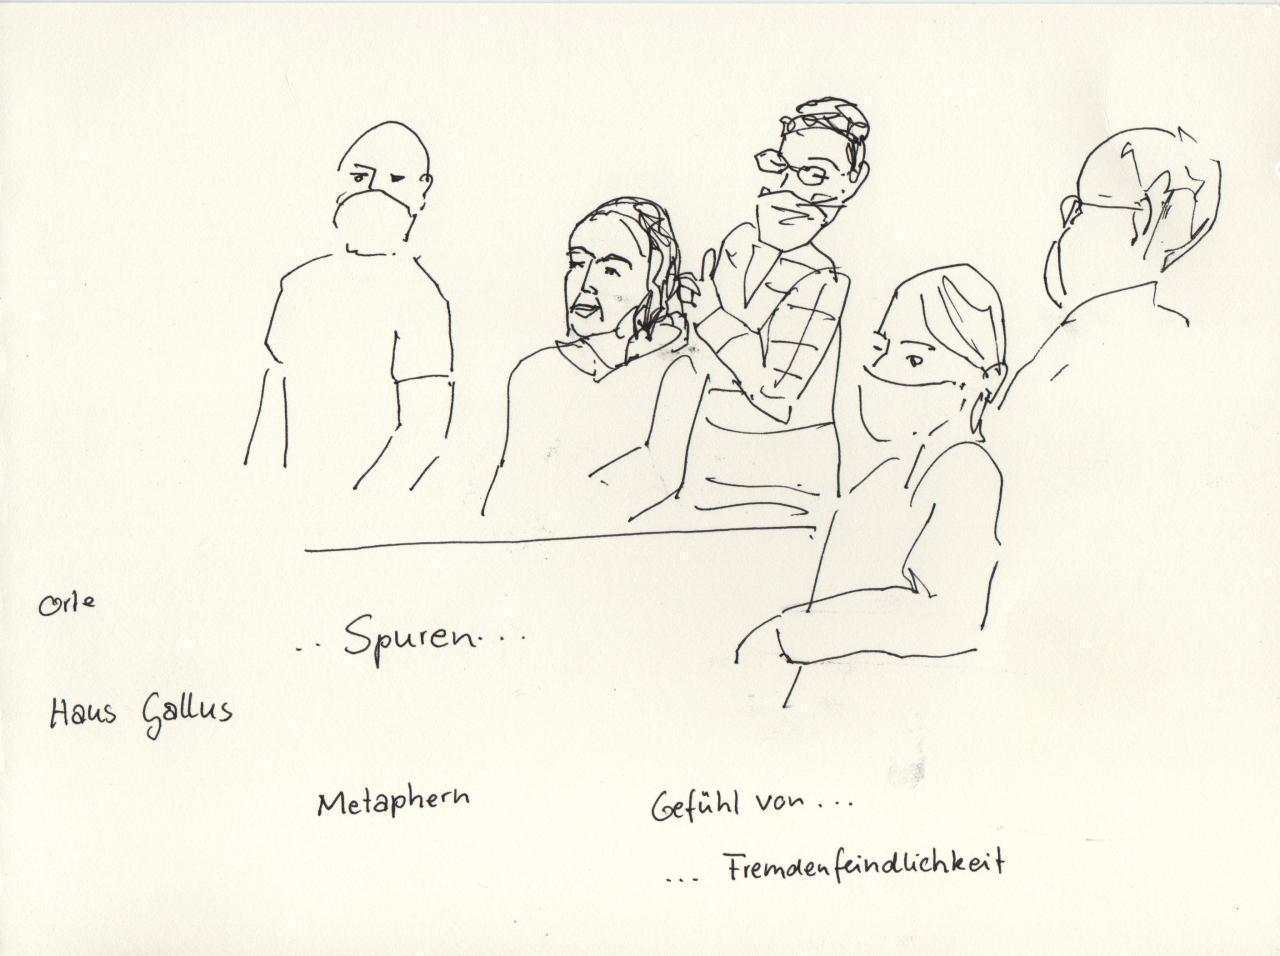 Orte
.. Spuren...
Haus Gallus
Metaphern
Gefühl von...
... Fremdenfeindlichkeit